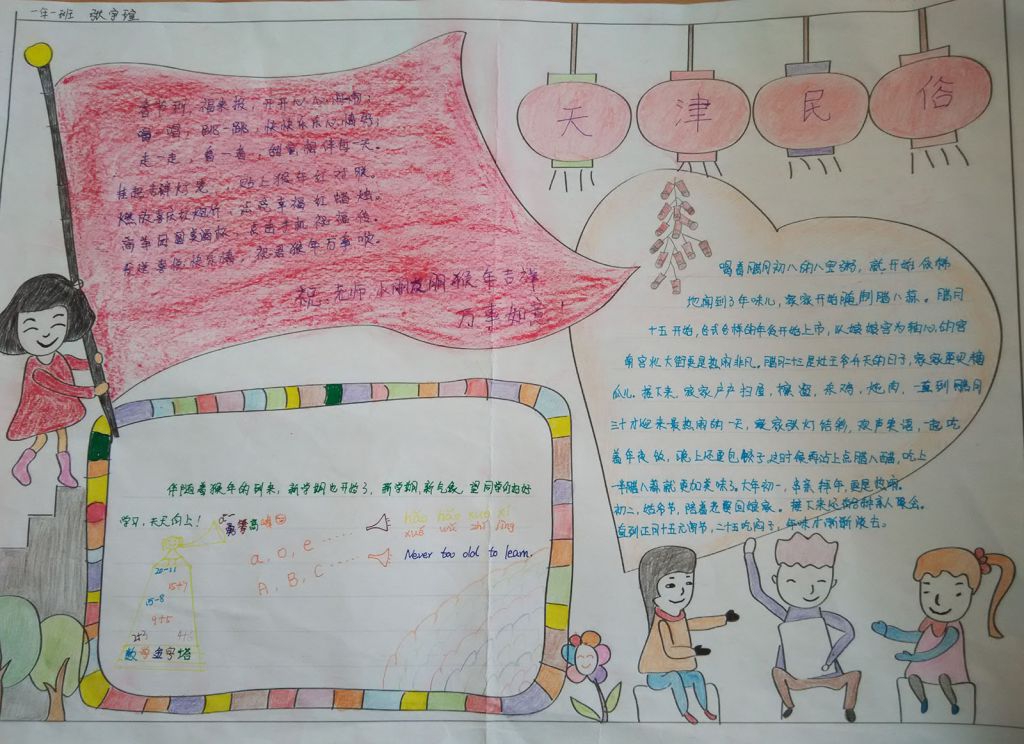 一年一班 张字谊
天津民俗
春节到，福来报，开开心心
唱一唱，跳一跳，快快乐乐心情好；
走一走，看一看，甜蜜相伴每一天。
挂起吉祥灯笼，贴上猴年好对联
燃放喜庆红烟花，点亮幸福红蜡烛。
高举团圆美酒杯，点击手机祝福传。
祝老师小朋友们猴年吉祥
万事如意！
喝着腊月初八的八宝粥，就开始依稀
地闻到了年味儿，家家开始腌制腊八蒜。腊月
十五开始，各式各样的年货开始上市，以娘娘宫为轴心的宫
南宫北大街更是热闹非凡。腊月二十三是灶王爷升天的日子，家家要买糖
瓜儿。接下来，家家户户扫屋，擦窗，杀鸡，炖肉，一直到腊月
三十才迎来最热闹的一天，家家张灯结彩，欢声笑语，一起吃
着年夜饭，晚上还要包饺子，这时候再沾上点腊八醋，吃上
一瓣腊八蒜就更加美味了。大年初一，串亲拜年，更是热闹。
初二，姑爷节，陪着老婆回娘家。接下来还要各种亲人聚会。
直到正月十五元宵节，二十五吃，年味才渐渐淡去。
伴随着猴年的到来，新学期也开始了，新学期，新气象，望同学们好好
学习，天天向上！
勇攀高峰
a, o, e ......
A, B, C ......
hǎo hǎo xué xí
xué wú zhǐ jìng
Never too old to learn.
20-11
15+7
15-8
9+5
数学金字塔